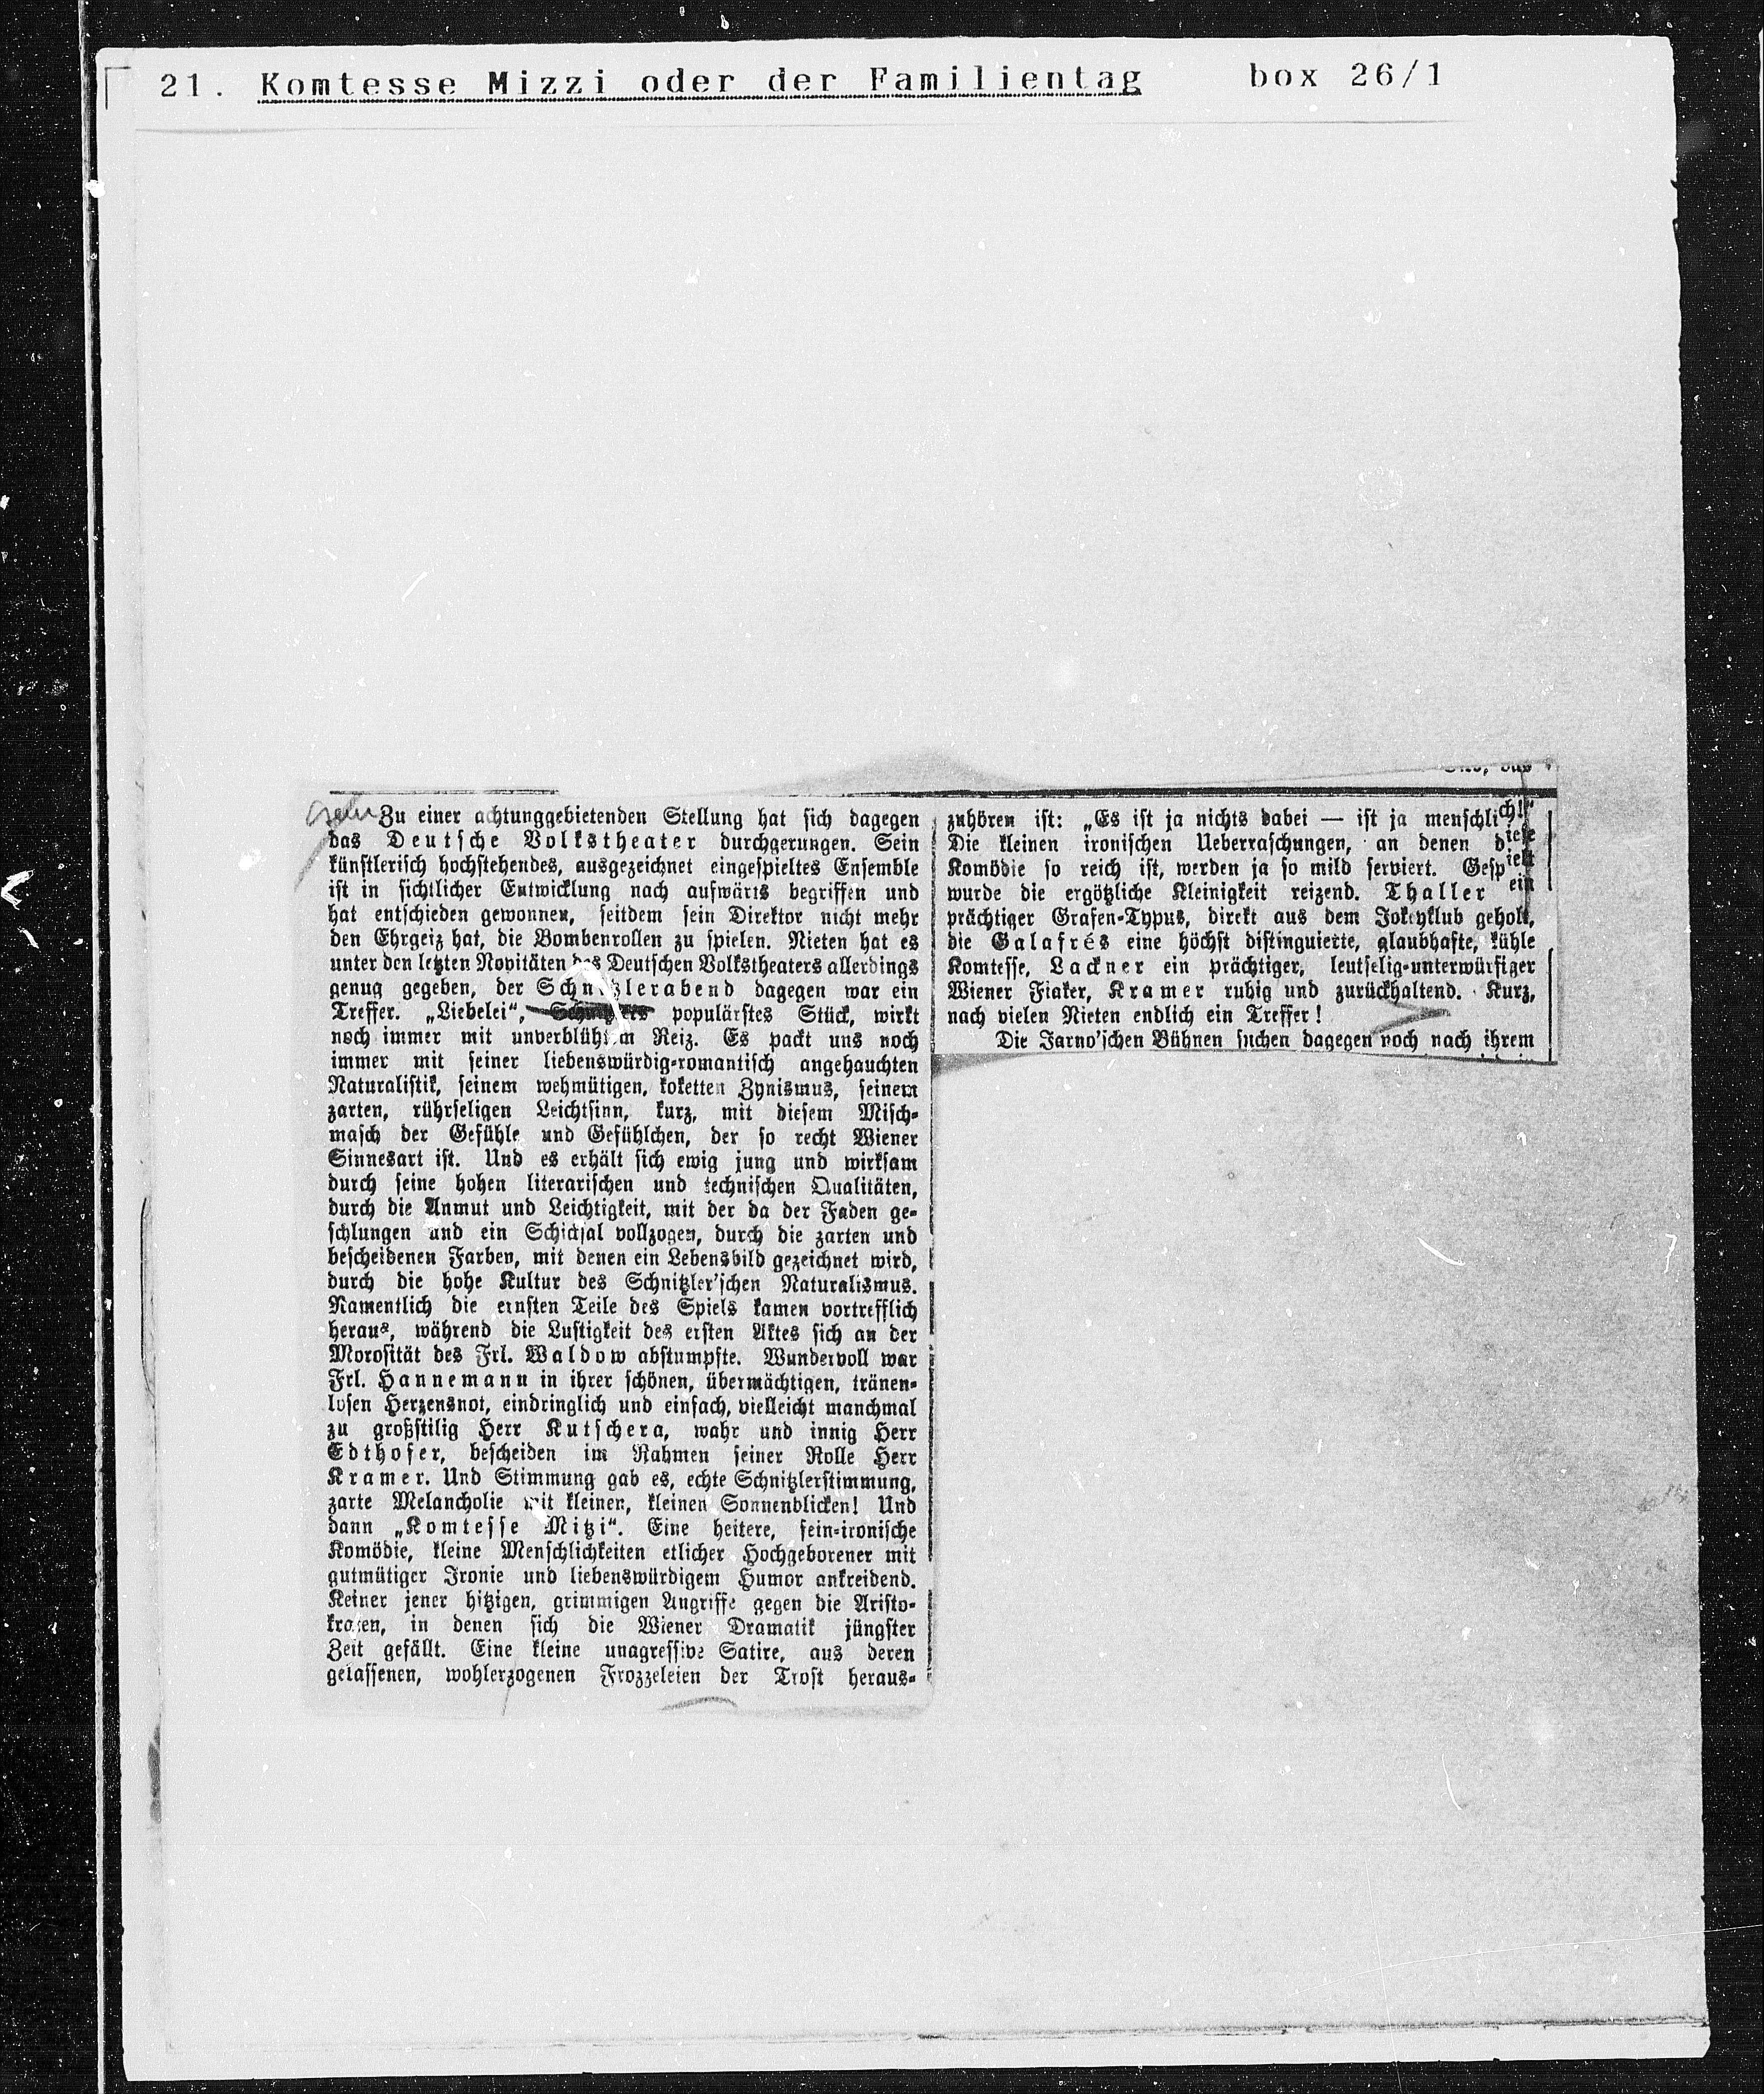 21. Komtesse Mizzi oder der Familientag box 26/1
Zu einer achtunggebietenden Stellung hat sich dagegen
das Deutsche Volkstheater durchgerungen. Sein
künstlerisch hochstehendes, ausgezeichnet eingespieltes Ensemble
ist in sichtlicher Entwicklung nach aufwärts begriffen und
hat entschieden gewonnen, seitdem sein Direktor nicht mehr
den Ehrgeiz hat, die Bombenrollen zu spielen. Nieten hat es
unter den letzten Novitäten des Deutschen Volkstheaters allerdings
genug gegeben, der Schnitzlerabend dagegen war ein
Treffer. „Liebelei“, populärstes Stück, wirkt
noch immer mit unverblühtem Reiz. Es packt uns noch
immer mit seiner liebenswürdig-romantisch angehauchten
Naturalistik, seinem wehmütigen, koketten Zynismus, seinem
zarten, rührseligen Leichtsinn, kurz, mit diesem Misch-
masch der Gefühle und Gefühlchen, der so recht Wiener
Sinnesart ist. Und es erhält sich ewig jung und wirksam
durch seine hohen literarischen und technischen Qualitäten,
durch die Anmut und Leichtigkeit, mit der da der Faden ge-
schlungen und ein Schicksal vollzogen, durch die zarten und
bescheidenen Farben, mit denen ein Lebensbild gezeichnet wird,
durch die hohe Kultur des Schnitzler'schen Naturalismus.
Namentlich die ernsten Teile des Spiels kamen vortrefflich
heraus, während die Lustigkeit des ersten Aktes sich an der
Morosität des Frl. Waldow abstumpfte. Wundervoll war
Frl. Hannemann in ihrer schönen, übermächtigen, tränen-
losen Herzensnot, eindringlich und einfach, vielleicht manchmal
zu großstilig Herr Kutschera, wahr und innig Herr
Edthofer, bescheiden im Rahmen seiner Rolle Herr
Kramer. Und Stimmung gab es, echte Schnitzlerstimmung,
zarte Melancholie mit kleinen, kleinen Sonnenblicken! Und
dann „Komtesse Mitzi“. Eine heitere, fein-ironische
Komödie, kleine Menschlichkeiten etlicher Hochgeborener mit
gutmütiger Ironie und liebenswürdigem Humor ankreidend.
Keiner jener hitzigen, grimmigen Angriffe gegen die Aristo-
kraten, in denen sich die Wiener Dramatik jüngster
Zeit gefällt. Eine kleine unagressive Satire, aus deren
gelassenen, wohlerzogenen Frozzeleien der Trost heraus-
zuhören ist: „Es ist ja nichts dabei — ist ja menschlich!“
Die kleinen ironischen Ueberraschungen, an denen diese
Komödie so reich ist, werden ja so mild serviert. Gespielt
wurde die ergötzliche Kleinigkeit reizend. Thaller ein
prächtiger Grafen-Typus, direkt aus dem Jokeyklub geholt,
die Galafrés eine höchst distinguierte, glaubhafte, kühle
Komtesse, Lackner ein prächtiger, leutselig-unterwürfiger
Wiener Fiaker, Kramer ruhig und zurückhaltend. Kurz,
nach vielen Nieten endlich ein Treffer!
Die Jarno'schen Bühnen suchen dagegen noch nach ihrem